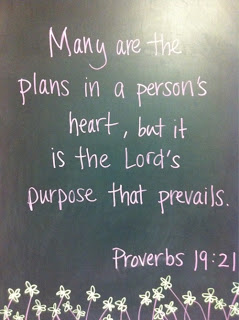 Many are the
plans in a person's
heart, but it
is the Lord's
purpose that prevails.
Proverbs 19:21